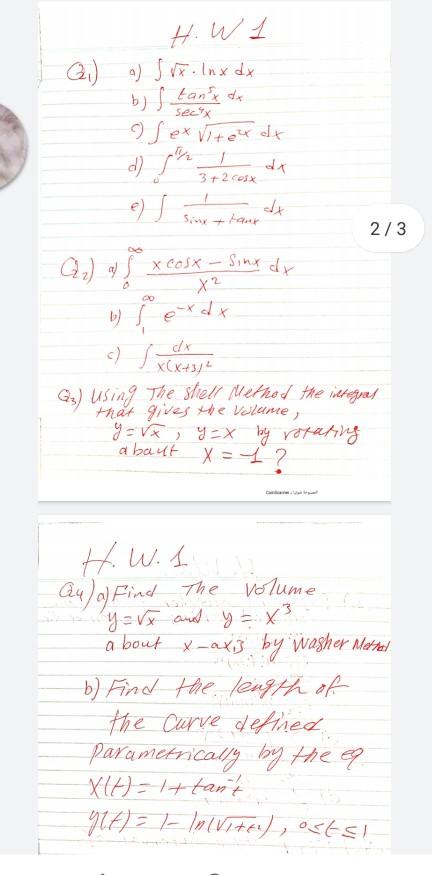 H. W 1
Q1) a) ∫ √x · ln x dx
b) ∫ tan⁵x / sec⁴x dx
c) ∫ eˣ √1+e²ˣ dx
d) ∫₀^π/2 1 / 3+2cosx dx
e) ∫ 1 / sinx + tanx dx
2 / 3
Q2) a) ∫₀^∞ x cosx − sinx / x² dx
b) ∫₁^∞ e⁻ˣ dx
c) ∫ dx / x(x+3)²
Q3) Using The shell Method the integral
that gives the volume,
y=√x , y=x by rotating
about x = -1 ?
CamScanner
H. W. 1
Q4) a) Find The Volume
y=√x and y= x³
about x-axis by washer Method.
b) Find the length of
the curve defined
parametrically by the eq
x(t) = 1+ tan⁻¹t
y(t) = 1- ln(√1+t²) , 0≤t≤1